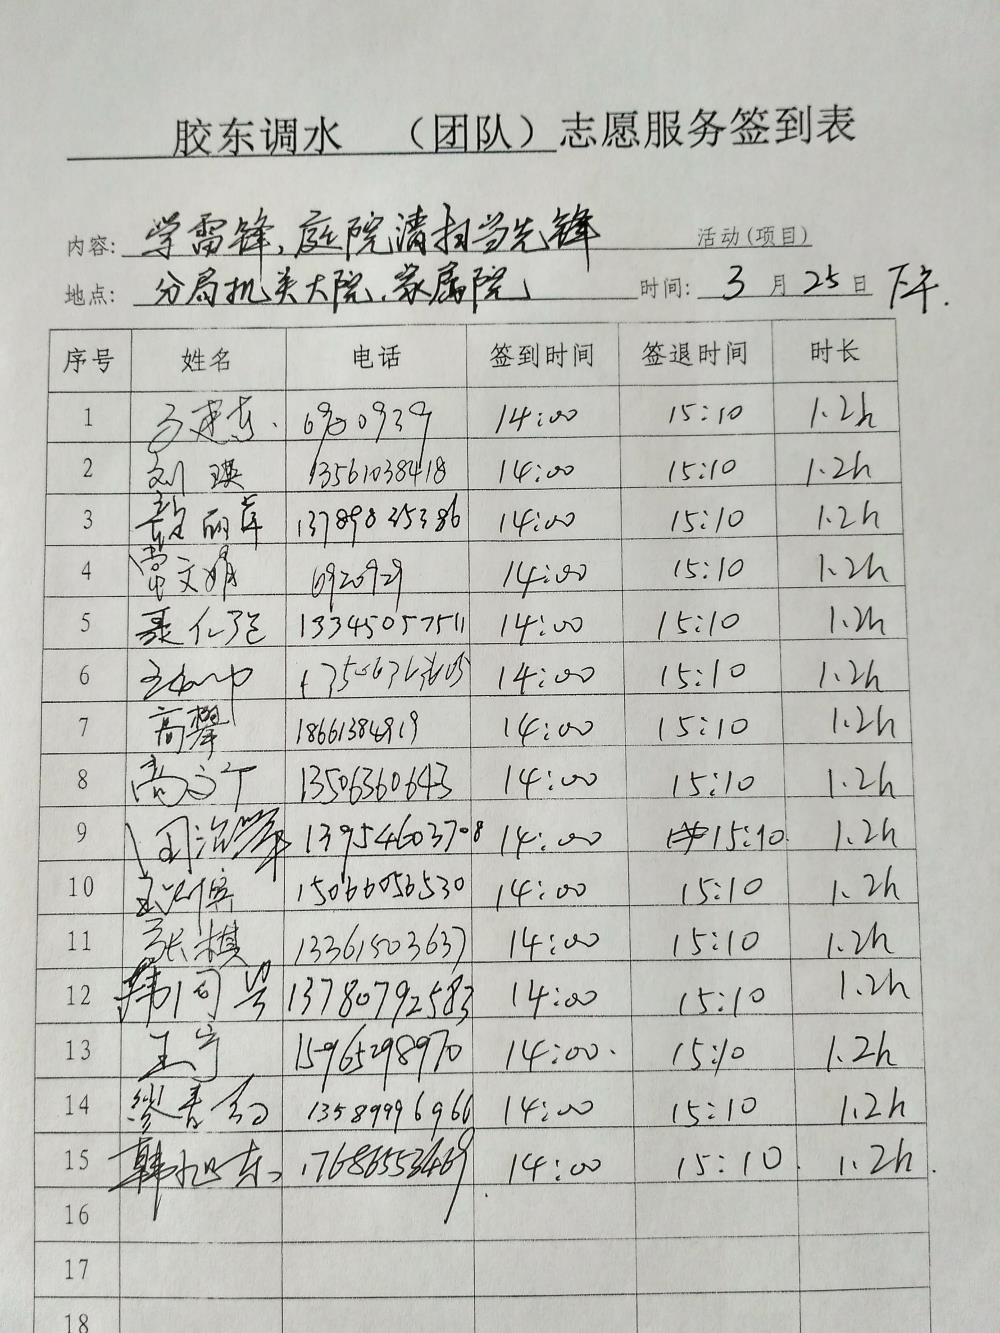 胶东调水 （团队）志愿服务签到表
内容: 学雷锋、庭院清扫当先锋 活动(项目)
地点: 分局机关大院、家属院 时间: 3 月 25 日 下午.
序号 姓名 电话 签到时间 签退时间 时长
1 14:00 15:10 1.2h
2 刘瑛 13561038418 14:00 15:10 1.2h
3 丽萍 13789825386 14:00 15:10 1.2h
4 常文娟 6920929 14:00 15:10 1.2h
5 聂仁 13345057511 14:00 15:10 1.2h
6 14:00 15:10 1.2h
7 高攀 18661384919 14:00 15:10 1.2h
8 高 13506360643 14:00 15:10 1.2h
9 周治 13954603708 14:00 15:10. 1.2h
10 15066056530 14:00 15:10 1.2h
11 张棋 13361503637 14:00 15:10 1.2h
12 韩同 13780792583 14:00 15:10 1.2h
13 王宁 15965298970 14:00. 15:10 1.2h
14 缪青 13589996966 14:00 15:10 1.2h
15 韩旭东 17686553469 14:00 15:10. 1.2h.
16
17
18